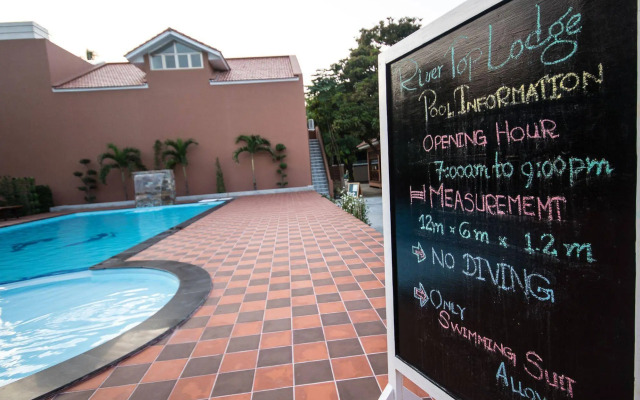 River Top Lodge
Pool Information
Opening Hour
7:00am to 9:00pm
Measurement
12m × 6m × 1.2m
No Diving
Only
Swimming Suit